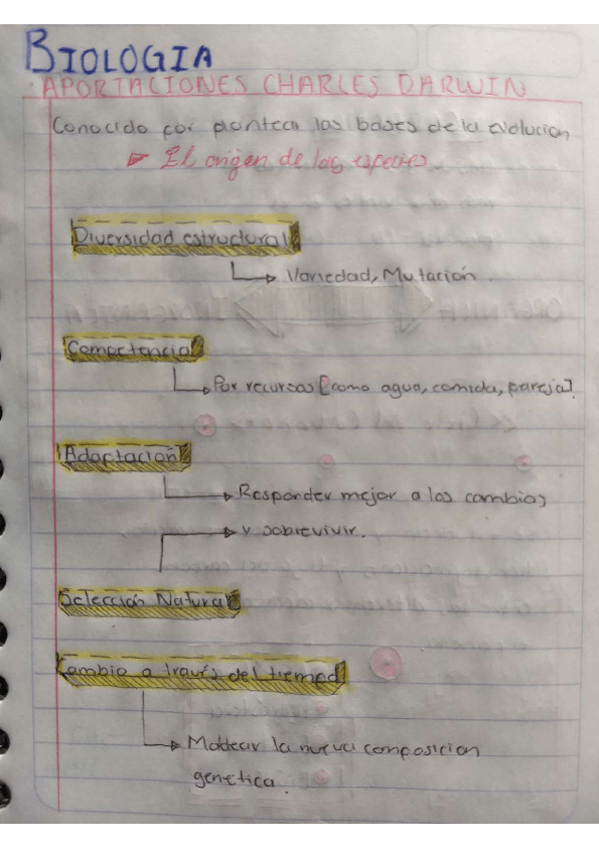 BIOLOGIA
• APORTACIONES CHARLES DARWIN
Conocido por plantear las bases de la evolucion
El origen de las especies.
Diversidad estructural
Variedad, Mutación.
Competencia
Por recursos [como agua, comida, pareja].
Adaptación
Responder mejor a los cambios
y sobrevivir.
Selección Natural
Cambio a través del tiempo
Moldear la nueva composicion
genetica.